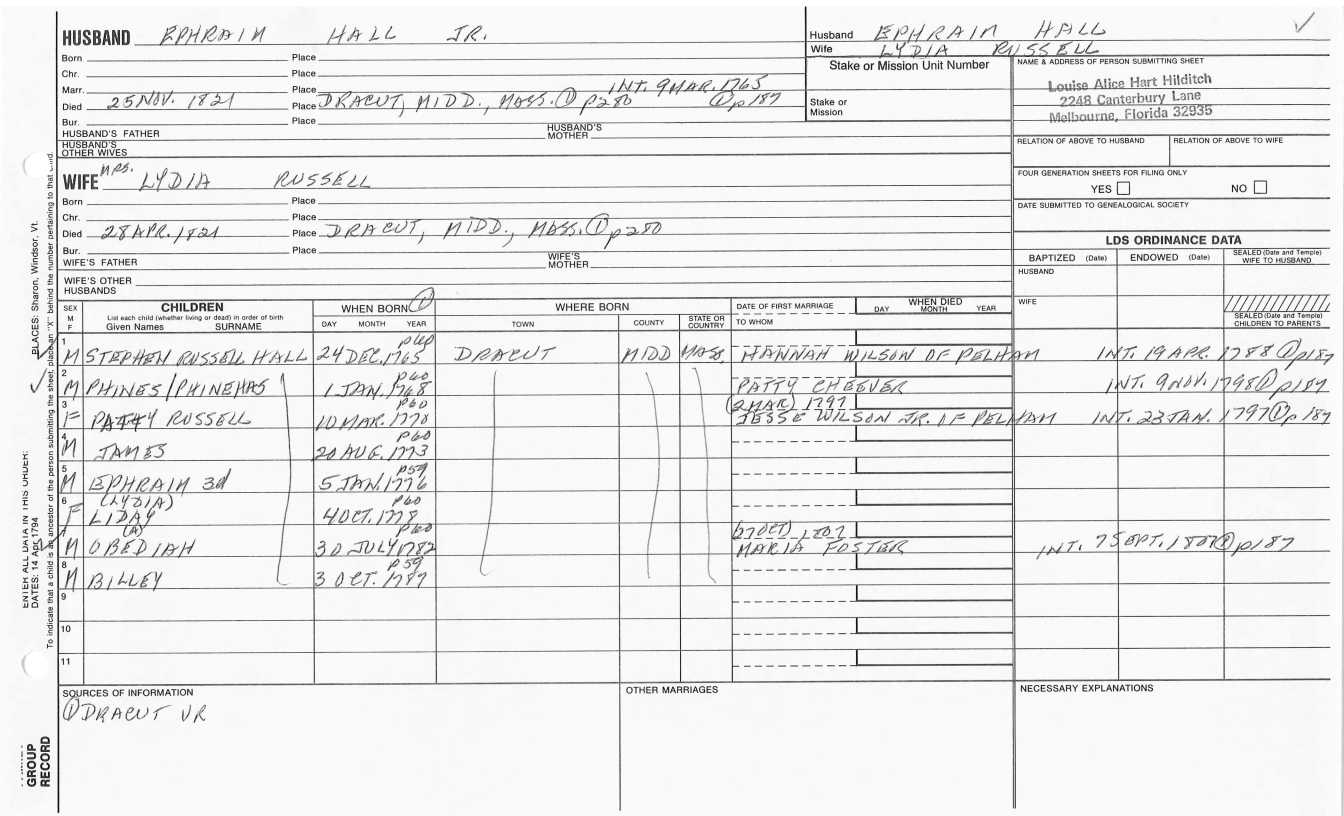 HUSBAND EPHRAIM HALL JR.
Husband EPHRAIM HALL
Wife LYDIA RUSSELL
Born Place
Chr. Place
Marr. Place INT. 9 MAR. 1765
Died 25 NOV. 1821 Place DRACUT, MIDD., MASS. ① p280 ① p187
Bur. Place
HUSBAND'S FATHER
HUSBAND'S MOTHER
HUSBAND'S OTHER WIVES
Stake or Mission Unit Number
Stake or Mission
NAME & ADDRESS OF PERSON SUBMITTING SHEET
Louise Alice Hart Hilditch
2248 Canterbury Lane
Melbourne, Florida 32935
RELATION OF ABOVE TO HUSBAND
RELATION OF ABOVE TO WIFE
FOUR GENERATION SHEETS FOR FILING ONLY
YES NO
DATE SUBMITTED TO GENEALOGICAL SOCIETY
WIFE MRS. LYDIA RUSSELL
Born Place
Chr. Place
Died 28 APR. 1821 Place DRACUT, MIDD., MASS. ① p280
Bur. Place
WIFE'S FATHER
WIFE'S MOTHER
WIFE'S OTHER HUSBANDS
LDS ORDINANCE DATA
BAPTIZED (Date) ENDOWED (Date) SEALED (Date and Temple) WIFE TO HUSBAND
HUSBAND
WIFE
SEALED (Date and Temple) CHILDREN TO PARENTS
SEX M F
CHILDREN
List each child (whether living or dead) in order of birth
Given Names SURNAME
WHEN BORN ①
DAY MONTH YEAR
WHERE BORN
TOWN COUNTY STATE OR COUNTRY
DATE OF FIRST MARRIAGE
TO WHOM
WHEN DIED
DAY MONTH YEAR
1 M STEPHEN RUSSELL HALL p60 24 DEC. 1765 DRACUT MIDD MASS. HANNAH WILSON OF PELHAM INT. 19 APR. 1788 ① p187
2 M PHINES/PHINEHAS p60 1 JAN. 1768 PATTY CHEEVER INT. 9 NOV. 1798 ① p187
3 F PATTY RUSSELL p60 10 MAR. 1770 (2 MAR) 1797 JESSE WILSON JR. OF PELHAM INT. 23 JAN. 1797 ① p187
4 M JAMES p60 20 AUG. 1773
5 M EPHRAIM 3d p59 5 JAN. 1776
6 F (LYDIA) LIDAY p60 4 OCT. 1778
7 M (A) OBEDIAH p60 30 JULY 1782 (27 OCT) 1807 MARIA FOSTER INT. 7 SEPT. 1807 ① p187
8 M BILLEY p59 3 OCT. 1787
9
10
11
SOURCES OF INFORMATION
① DRACUT VR
OTHER MARRIAGES
NECESSARY EXPLANATIONS
GROUP RECORD
ENTER ALL DATA IN THIS ORDER:
DATES: 14 Apr 1794
PLACES: Sharon, Windsor, Vt.
To indicate that a child is an ancestor of the person submitting the sheet, place an "X" behind the number pertaining to that child.